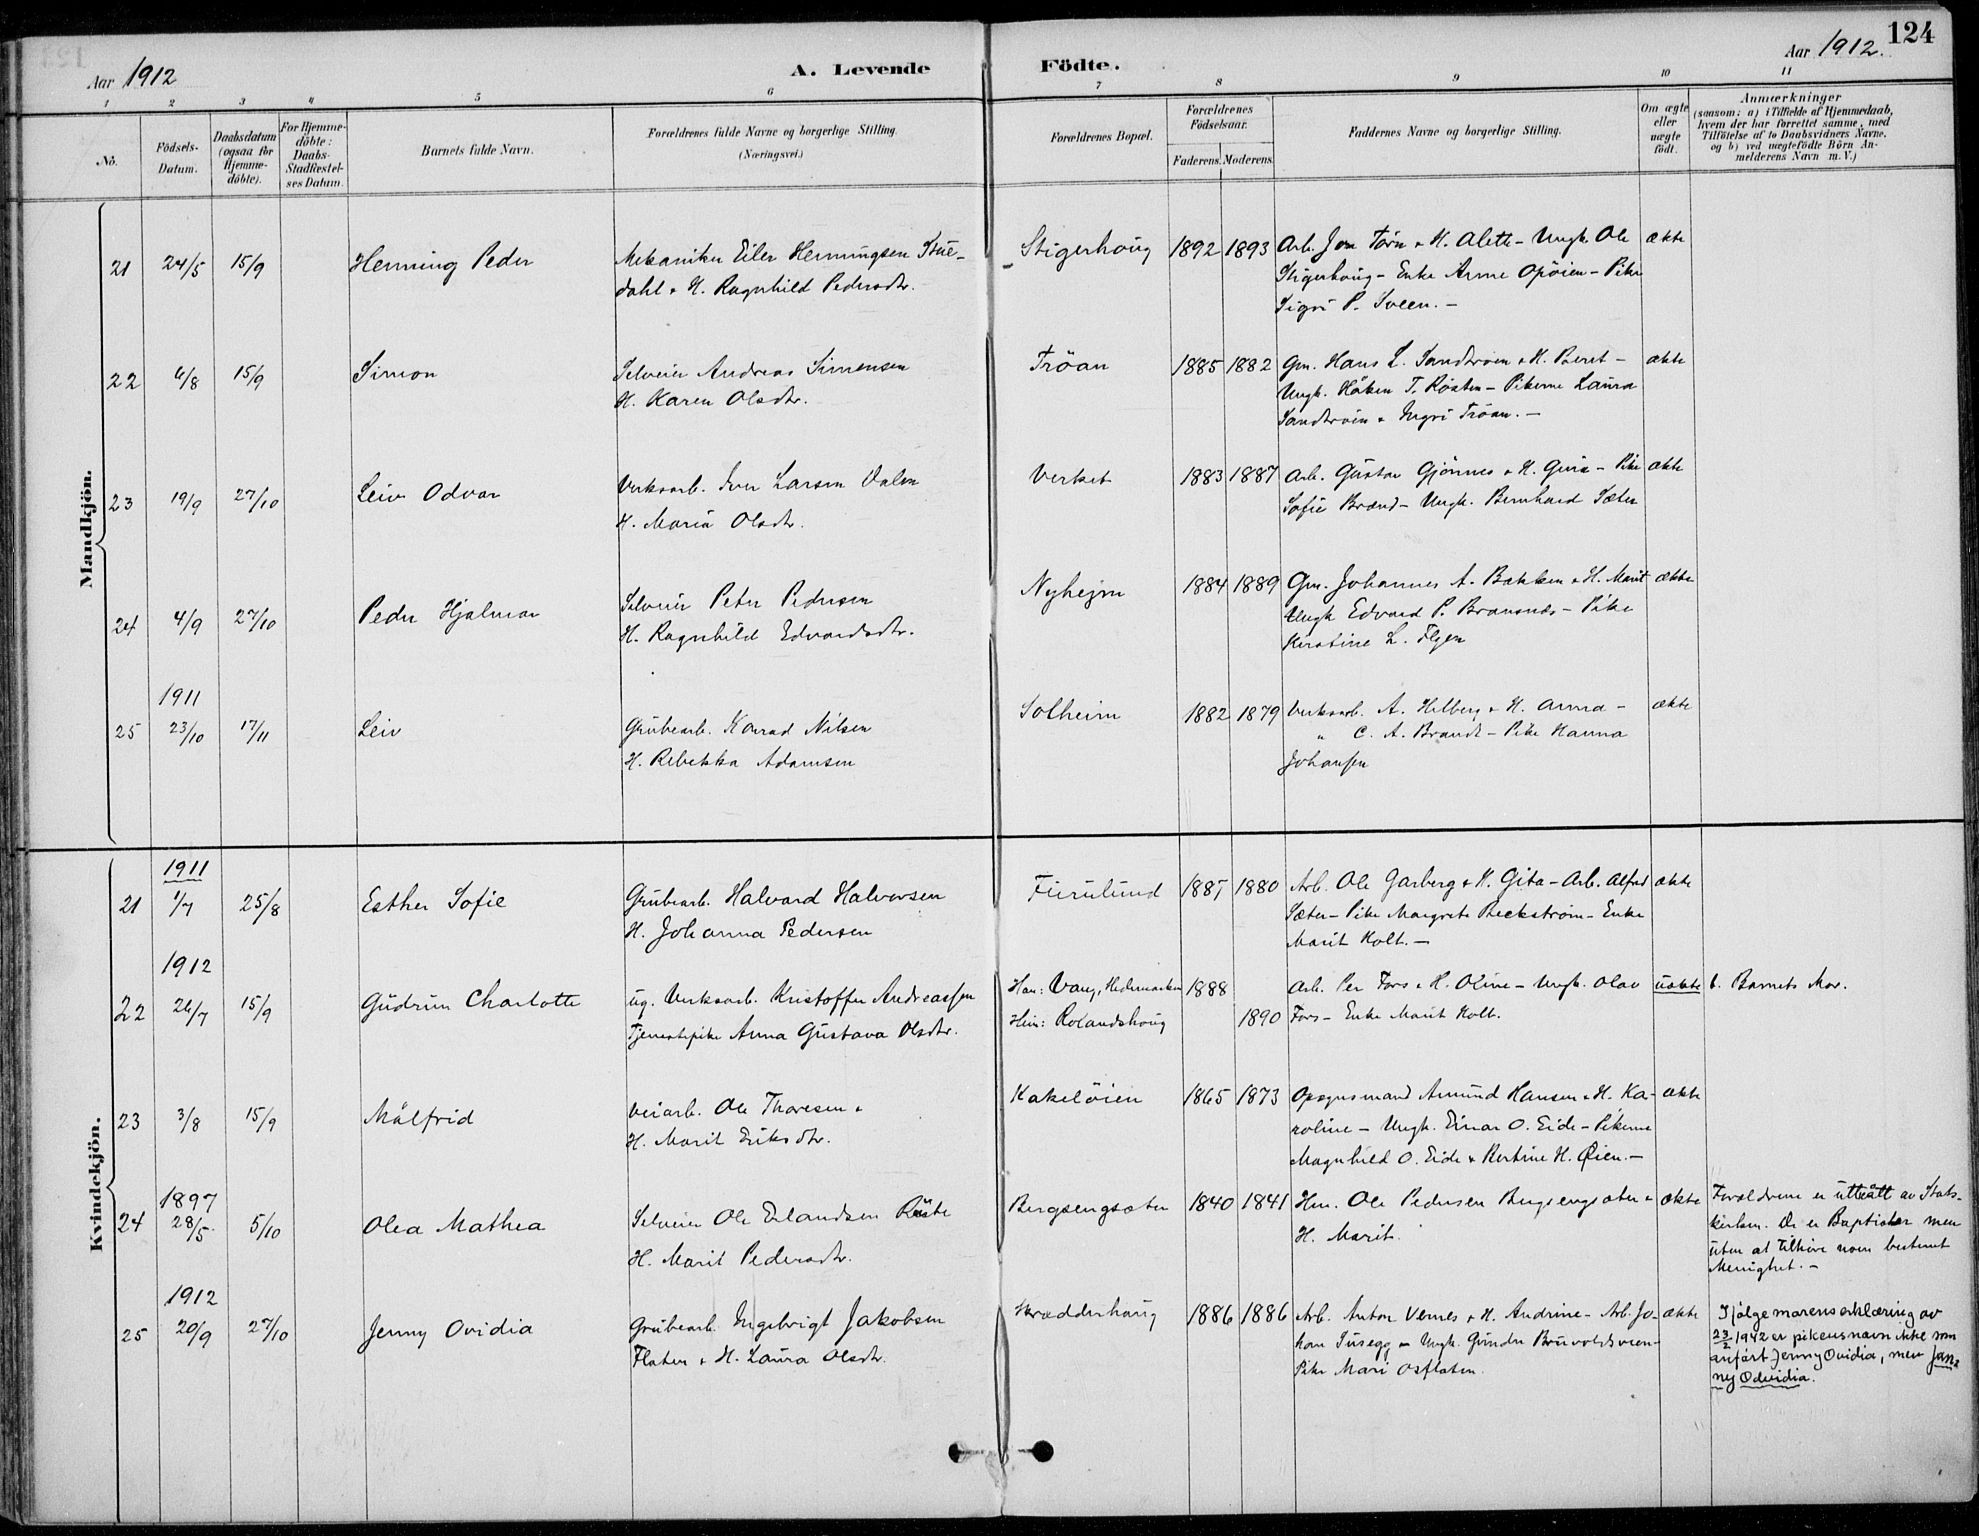 Aar 1912
A. Levende
Födte.
Aar 1912.
124
1 2 3 4 5 6 7 8 9 10 11
No.
Födsels-
Datum.
Daabsdatum
(ogsaa for
Hjemme-
döbte).
For Hjemme-
döbte:
Daabs-
Stadfæstel-
ses Datum.
Barnets fulde Navn.
Forældrenes fulde Navne og borgerlige Stilling.
(Næringsvei.)
Forældrenes Bopæl.
Forældrenes
Födselsaar.
Faderens. Moderens.
Faddernes Navne og borgerlige Stilling.
Om ægte
eller
uægte
födt.
Anmærkninger
(saasom: a) i Tilfælde af Hjemmedaab,
hvem der har forrettet samme, med
Tilföielse af to Daabsvidners Navne,
og b) ved uægtefödte Börn An-
melderens Navn m. V.)
Mandkjön.
21 24/5 15/9 Henning Peder
Mekaniker Eiler Henningsen Stue-
dahl & H. Ragnhild Pedersdtr.
Stigerhoug 1892 1893
Arb. Jon Törn & H. Alette - Ungk. Ole
Stigerhoug - Enke Anne Opöien - Pike
Sigri P. Sveen. -
ekte
22 6/8 15/9 Simon
Selveier Andreas Simensen
H. Karen Olsdtr.
Tröan 1885 1882
Gm. Hans L. Sandtröen & H. Beret -
Ungk. Håken T. Røsten - Pikerne Laura
Sandtröen & Ingri Tröan. -
ekte
23 19/9 27/10 Leiv Odvar
Verksarb. Iver Larsen Dalen
H. Maria Olsdtr.
Verket 1883 1887
Arb. Gustav Gjönnes & H. - Pike
Sofie Brand - Ungk. Bernhard Sæter
ekte
24 4/9 27/10 Peder Hjalmar
Selveier Peter Pedersen
H. Ragnhild Edvardsdtr.
Nyhejm 1884 1889
Gm. Johannes A. Bakken & H. Marit
Ungk Edvard P. Bransnes - Pike
Kirstine L. Flyen
ekte
1911
25 23/10 17/11 Leiv
Grubearb. Konrad Nilsen
H. Rebekka Adamsen
Solheim 1882 1879
Verksarb. A. Hilberg & H. Anna -
" C. A. Brandt - Pike Hanna
Johansen
ekte
Kvindekjön.
1911
21 1/7 25/8 Esther Sofie
Grubearb. Halvard Halvorsen
H. Johanna Pedersen
Furulund 1887 1880
Arb. Ole Garberg & H. Gita - Arb. Alfred
Sæter - Pike Margrete Beckstrøm - Enke
Marit Holt. -
ekte
1912
22 26/7 15/9 Gudrun Charlotte
ug. Verksarb. Kristoffer Andreassen
Tjenestepike Anna Gustava Olsdtr.
Han: Vang, Hedemarken 1888
Hun: Rolandshoug 1890
Arb. Per Fors & H. Oline - Ungk. Olav
Fors - Enke Marit Holt.
uekte
b. Barnets Mor.
23 3/8 15/9 Målfrid
Veiarb. Ole Thoresen &
H. Marit Eriksdtr.
Kakelöien 1865 1873
Opsynsmand Amund Hansen & H. Ka-
roline - Ungk. Einar O. Eide - Pikerne
Magnhild O. Eide & Kertine H. Øien. -
ekte
1897
24 28/5. 5/10 Olea Mathea
Selveier Ole Erlandsen Røste
H. Marit Pedersdtr.
Bergsengsæter 1840 1841
Hm. Ole Pedersen Bergsengsæter &
H. Marit.
ekte
Forældrene er uttrått av Stats-
kirken. De er Baptister men
uten at tilhøre noen bestemt
Menighet. -
1912
25 20/9 27/10 Jenny Ovidia
Grubearb. Ingebrigt Jakobsen
Flaten & H. Laura Olsdtr.
Skredderhaug 1886 1886
Arb. Anton Vernes & H. Andrine - Arb. Jo-
han Tusegg - Ungk. Gunder Bruvoldsveen -
Pike Mari Osflaten
ekte
Ifølge morens erklæring av
23/2 1942 er pikens navn ikke som
anført Jenny Ovidia, men Jen-
ny Odvidia.